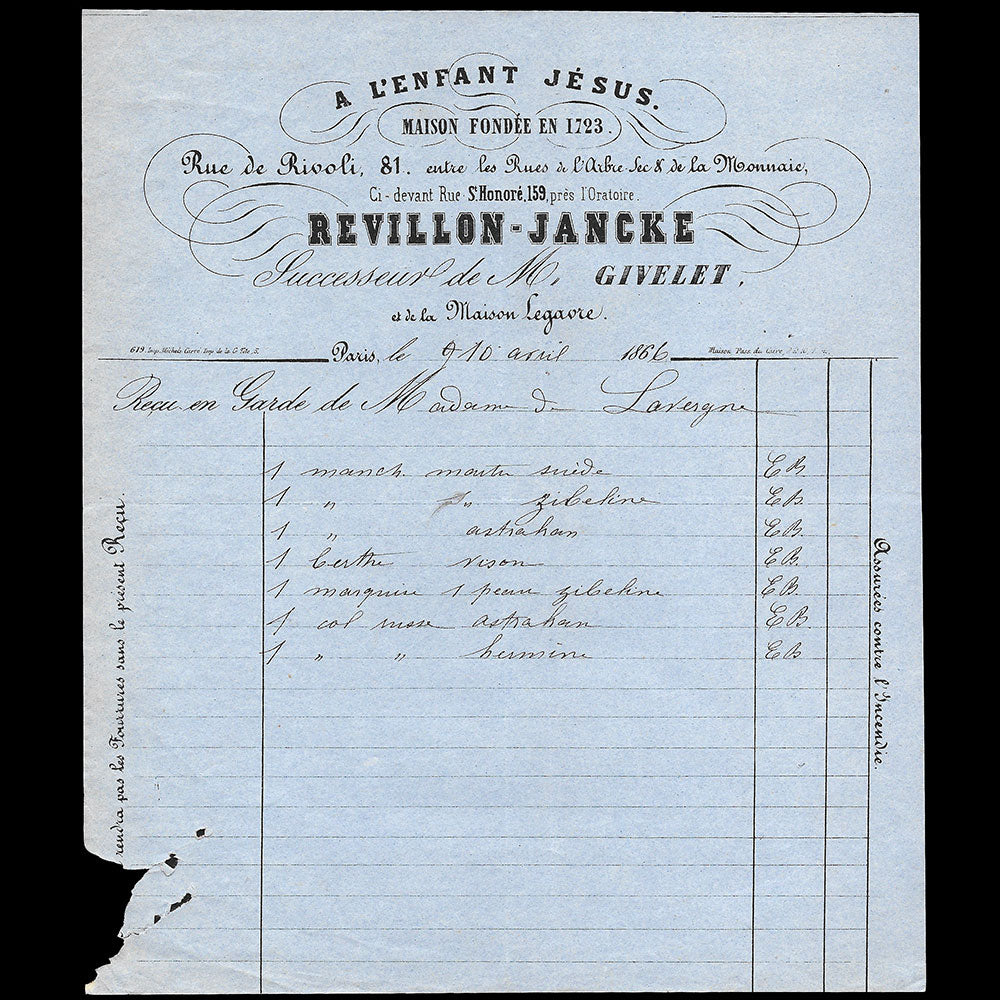 A L'ENFANT JÉSUS.
MAISON FONDÉE EN 1723.
Rue de Rivoli, 81. entre les Rues de l'Arbre-Sec & de la Monnaie,
Ci-devant Rue St Honoré, 159, près l'Oratoire.
REVILLON-JANCKE
Successeur de M. GIVELET,
et de la Maison Legavre.
619. Imp.
Paris, le 10 avril 1866
Reçu en Garde de Madame de Lavergne
1 manch. martre suède EB.
1 " " zibeline EB
1 " astrakan EB.
1 berthe vison EB.
1 marquise 1 peau zibeline EB.
1 col russe astrakan EB.
1 " " hermine EB
rendra pas les Fourrures sans le présent Reçu.
Assurées contre l'Incendie.